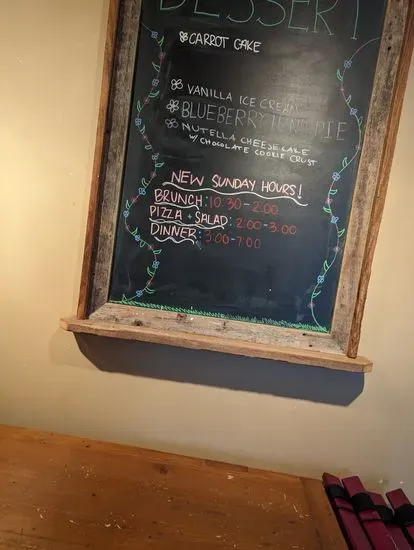 DESSERT
CARROT CAKE
VANILLA ICE CREAM
BLUEBERRY PIE
NUTELLA CHEESECAKE
W/ CHOCOLATE COOKIE CRUST
NEW SUNDAY HOURS!
BRUNCH: 10:30-2:00
PIZZA + SALAD: 2:00-3:00
DINNER: 3:00-7:00